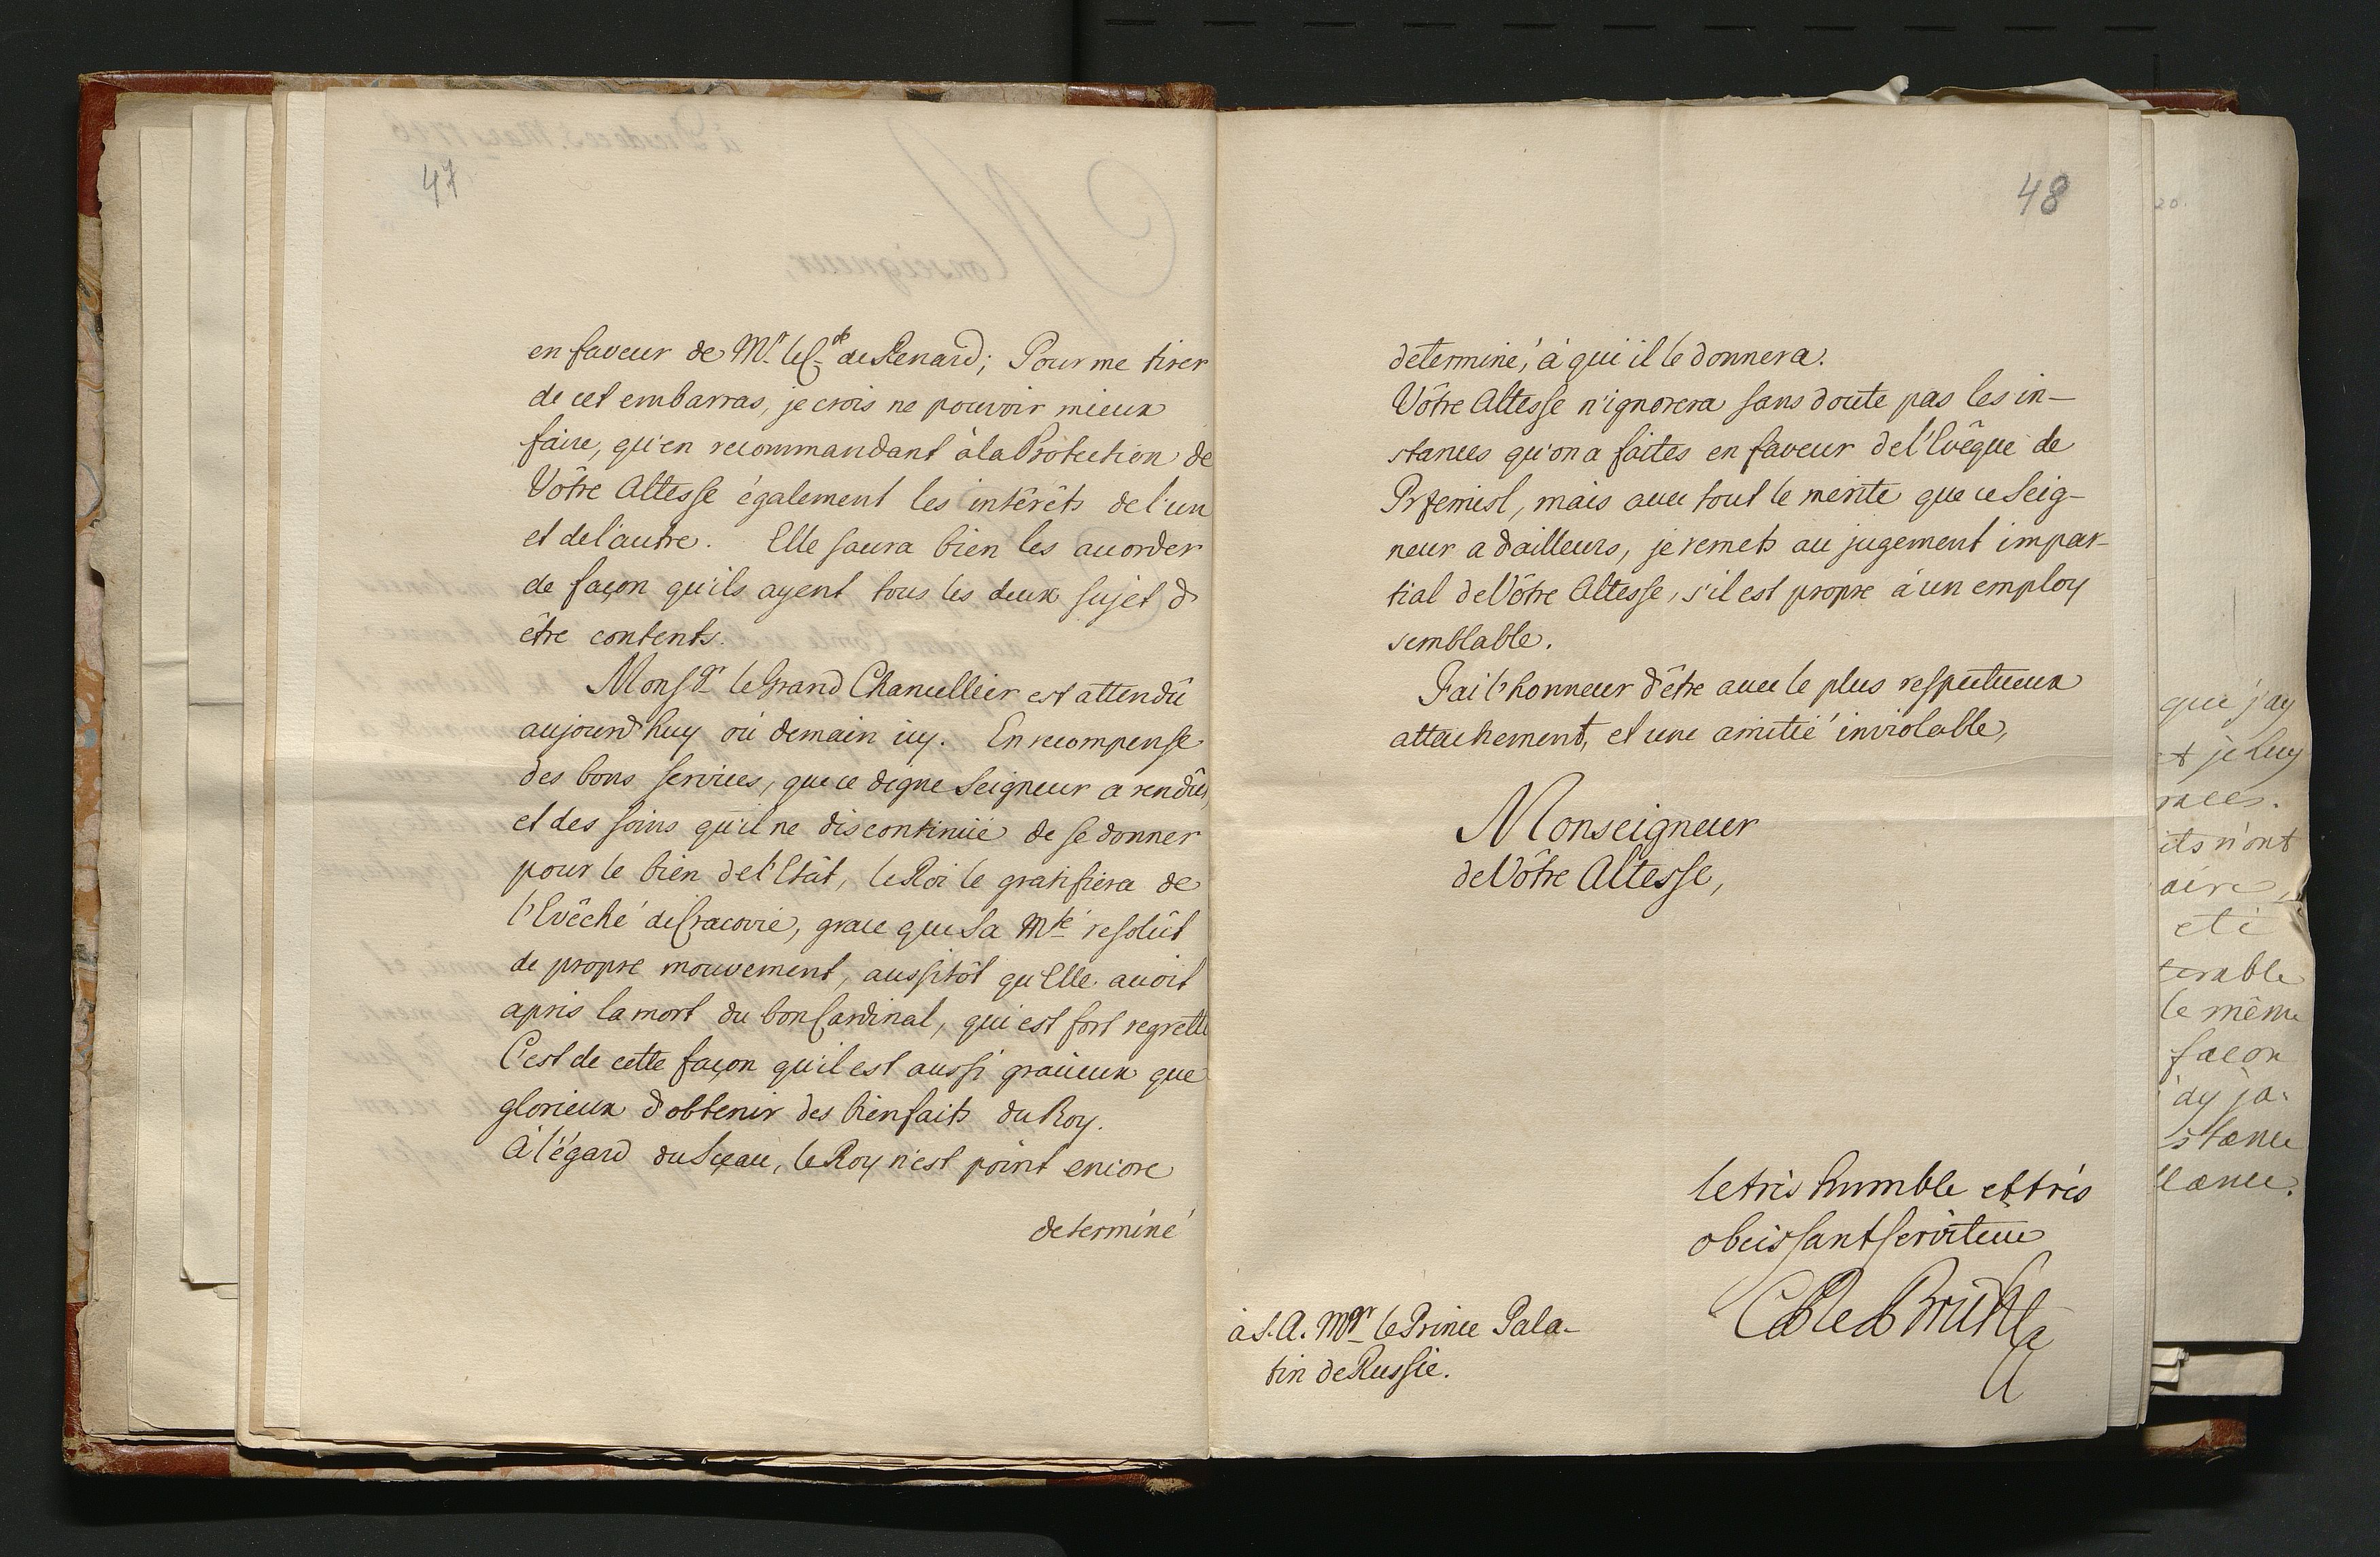 47
en faveur de Mr. le Cte de Renard; Pour me tirer
de cet embarras, je crois ne pouvoir mieux
faire, qu'en recommandant à la Protection de
Vôtre Altesse également les intérêts de l'un
et de l'autre. Elle saura bien les accorder
de façon qu'ils ayent tous les deux sujet d'
être contents.
Monsgr le Grand Chancellier est attendû
aujourd'huy où demain icy. En recompense
des bons services, que ce digne Seigneur a rendûs,
et des soins qu'il ne discontinüe de se donner
pour le bien de l'Etât, le Roi le gratifiera de
l'Evêché de Cracovie, grace que Sa Mté resolût
de propre mouvement, aussitôt qu'Elle avoit
apris la mort du bon Cardinal, qui est fort regretté
C'est de cette façon qu'il est aussi gracieux que
glorieux d'obtenir des bienfaits du Roy.
À l'égard du Sçeau, le Roy n'est point encore
determiné
48
determiné, à qui il le donnera.
Vôtre Altesse n'ignorera sans doute pas les in-
stances qu'on a faites en faveur de l'Evêque de
Przemisl, mais avec tout le merite que ce Seig-
neur a d'ailleurs, je remets au jugement impar-
tial de Vôtre Altesse, s'il est propre à un employ
semblable.
J'ai l'honneur d'être avec le plus respectueux
attachement, et une amitié inviolable,
Monseigneur
de Vôtre Altesse,
le très humble et très
obeissant serviteur
C de Bruhl
à S. A. Mgr le Prince Pala-
tin de Russie.
20.
que j'ay
et je luy
races.
its n'ont
aire,
eté
terable
le même
façon
j'ay ja-
stance